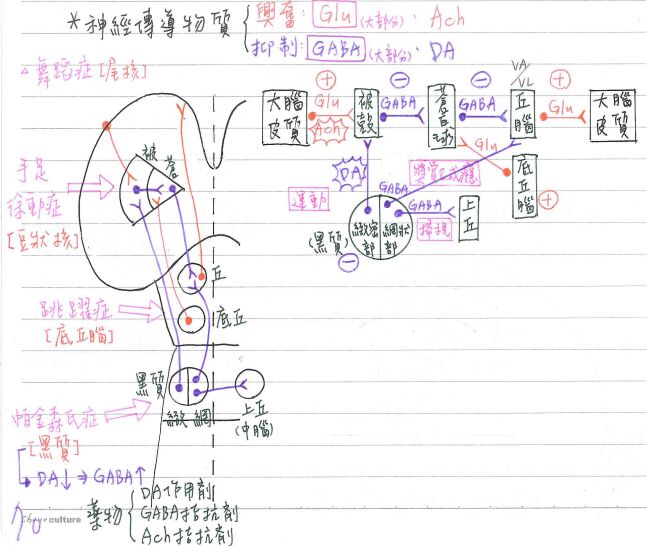 *神經傳導物質 興奮: Glu (大部分)、Ach
抑制: GABA (大部分)、DA
△舞蹈症[尾核]
大腦皮質 Glu Ach 被殼 GABA 蒼白球 GABA VA/VL 丘腦 Glu 大腦皮質
被 蒼
手足徐動症
[豆狀核]
DA
Glu
底丘腦
運動
GABA
GABA
上丘
掃視
(黑質) 緻密部 網狀部
丘
跳躍症
[底丘腦]
底丘
黑質
緻 網
上丘
(中腦)
帕金森氏症
[黑質]
DA↓⇒GABA↑
藥物 DA作用劑
GABA拮抗劑
Ach拮抗劑
culture